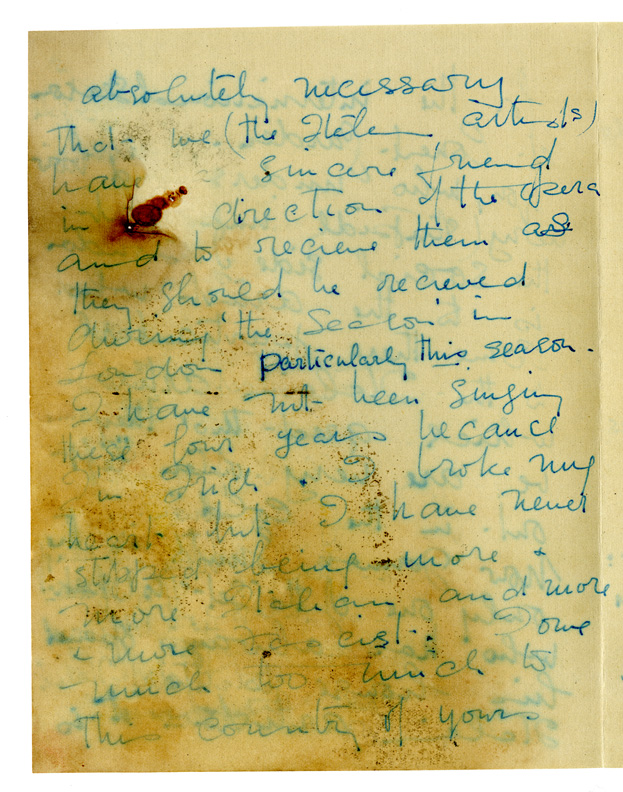 absolutely necessary
that we (the Italian artists)
have a sincere friend
in direction of the opera
and to recieve them as
they should be recieved
during "the Season" in
London particularly this season.
I have not been singing
here four years becauce
I'm Irich. I broke my
heart but I have never
stopped being more +
more Italian and more
+ more Fascist. I owe
much too much to
this country of yours